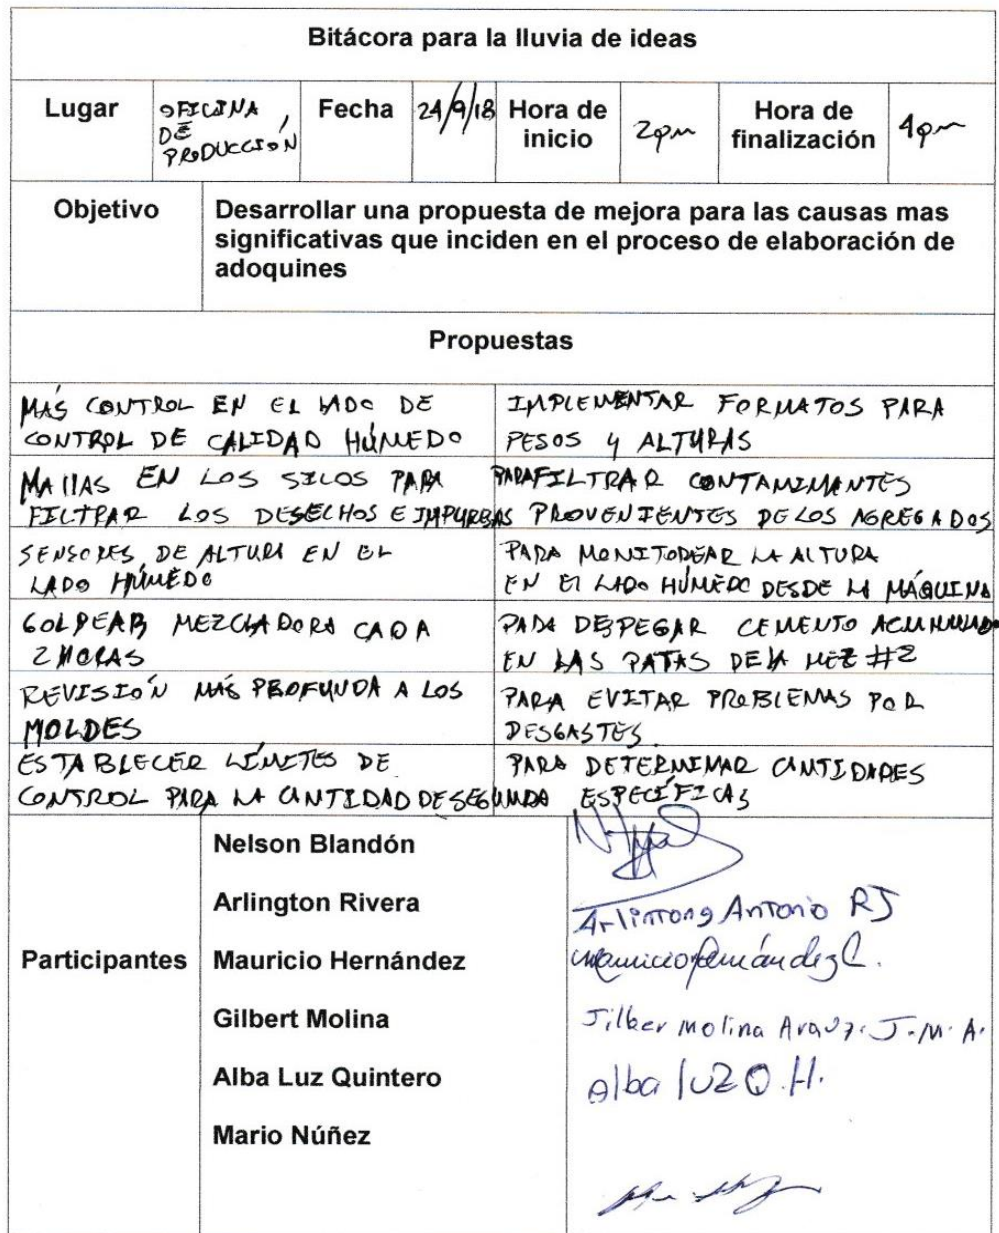 Bitácora para la lluvia de ideas
Lugar
OFICINA
DE
PRODUCCIÓN
Fecha
24/9/18
Hora de
inicio
2pm
Hora de
finalización
4pm
Objetivo
Desarrollar una propuesta de mejora para las causas mas
significativas que inciden en el proceso de elaboración de
adoquines
Propuestas
MÁS CONTROL EN EL LADO DE
CONTROL DE CALIDAD HÚMEDO
IMPLEMENTAR FORMATOS PARA
PESOS Y ALTURAS
MALLAS EN LOS SILOS PARA
FILTRAR LOS DESECHOS E IMPUREZAS
PARA FILTRAR CONTAMINANTES
PROVENIENTES DE LOS AGREGADOS
SENSORES DE ALTURA EN EL
LADO HÚMEDO
PARA MONITOREAR LA ALTURA
EN El LADO HÚMEDO DESDE LA MÁQUINA
GOLPEAR MEZCLADORA CADA
2 HORAS
PARA DESPEGAR CEMENTO ACUMULADO
EN LAS PATAS DE LA MEZ #2
REVISIÓN MÁS PROFUNDA A LOS
MOLDES
PARA EVITAR PROBLEMAS POR
DESGASTES
ESTABLECER LÍMITES DE
CONTROL PARA LA CANTIDAD DE SEGUNDA
PARA DETERMINAR CANTIDADES
ESPECÍFICAS
Participantes
Nelson Blandón
Arlington Rivera
Arlintong Antonio RJ
Mauricio Hernández
Mauricio Hernández C.
Gilbert Molina
Jilber Molina Arauz. J.M.A.
Alba Luz Quintero
Alba luz Q.H.
Mario Núñez